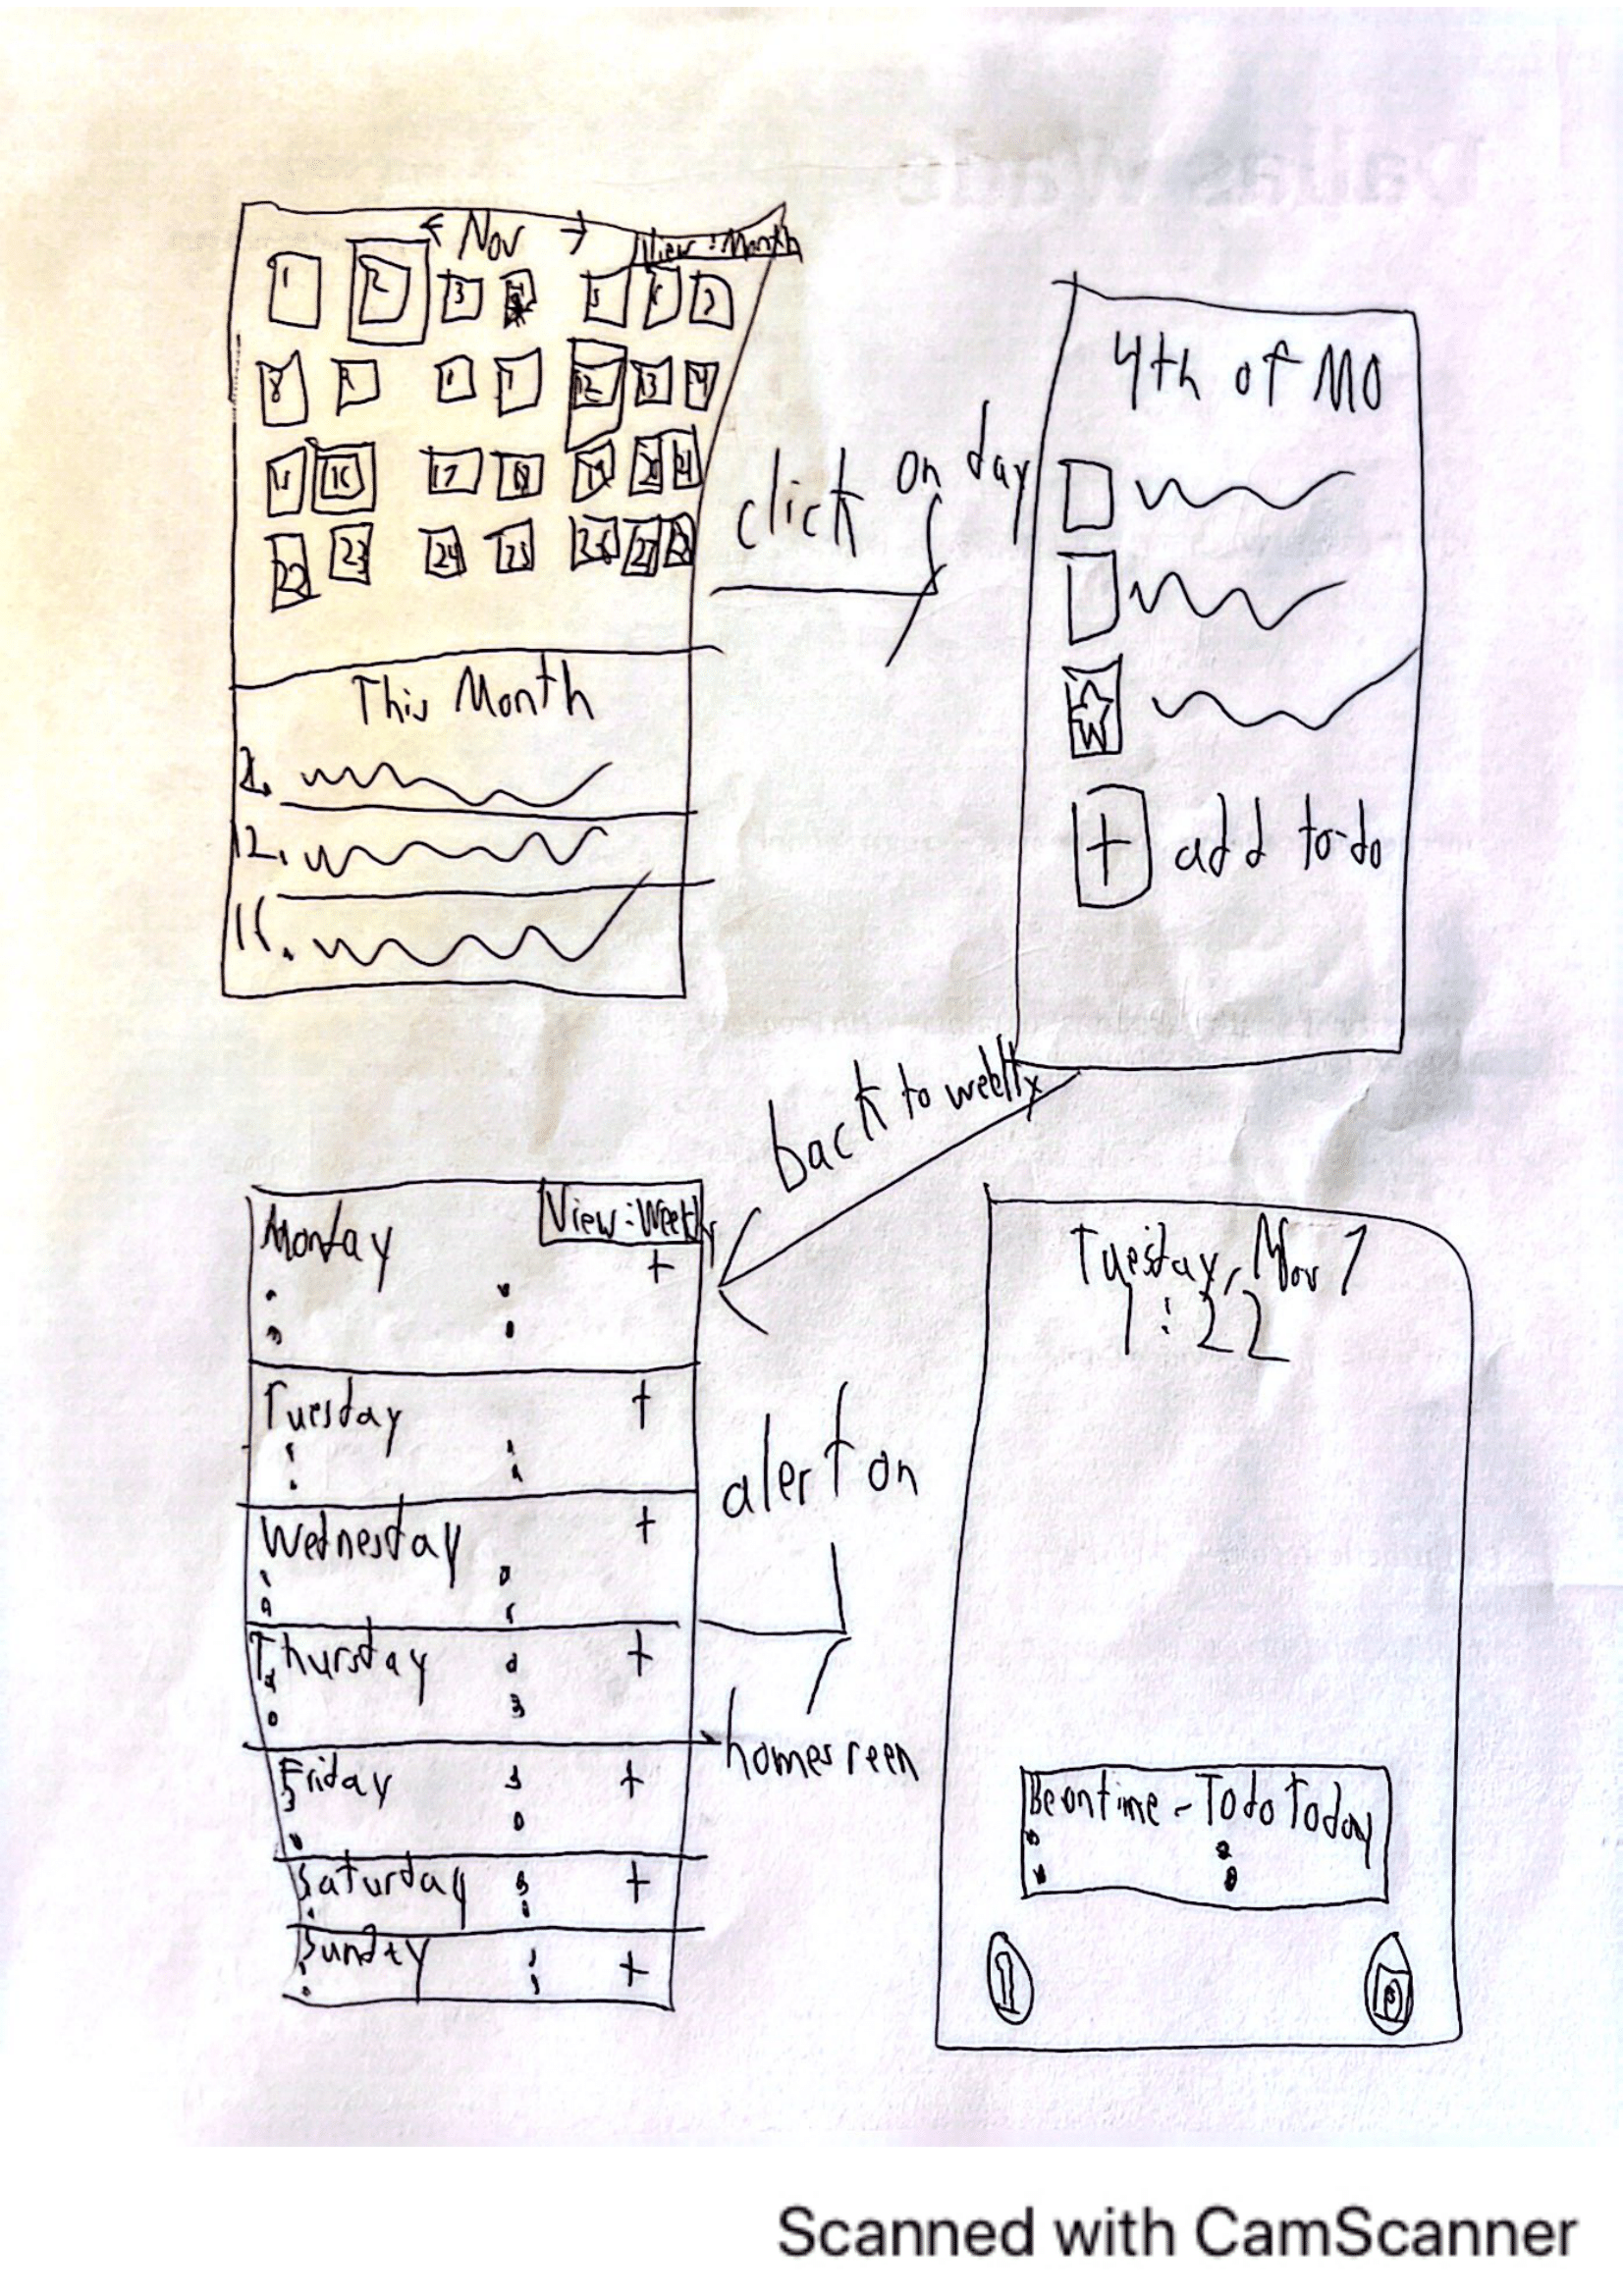 ← Nov →
View : Month
1 2 3 4 5 6 7
8 9 12 13 14
15 16 17 18 19 20 21
22 23 24 25 26 27 28
This Month
2.
12.
16.
click on day
4th of MO
+ add to-do
back to weekly
View : Weekly
Monday +
Tuesday +
Wednesday +
Thursday +
Friday +
Saturday +
Sunday +
alert on
homescreen
Tuesday, Nov 7
1 : 22
Beontime - Todo Today
Scanned with CamScanner